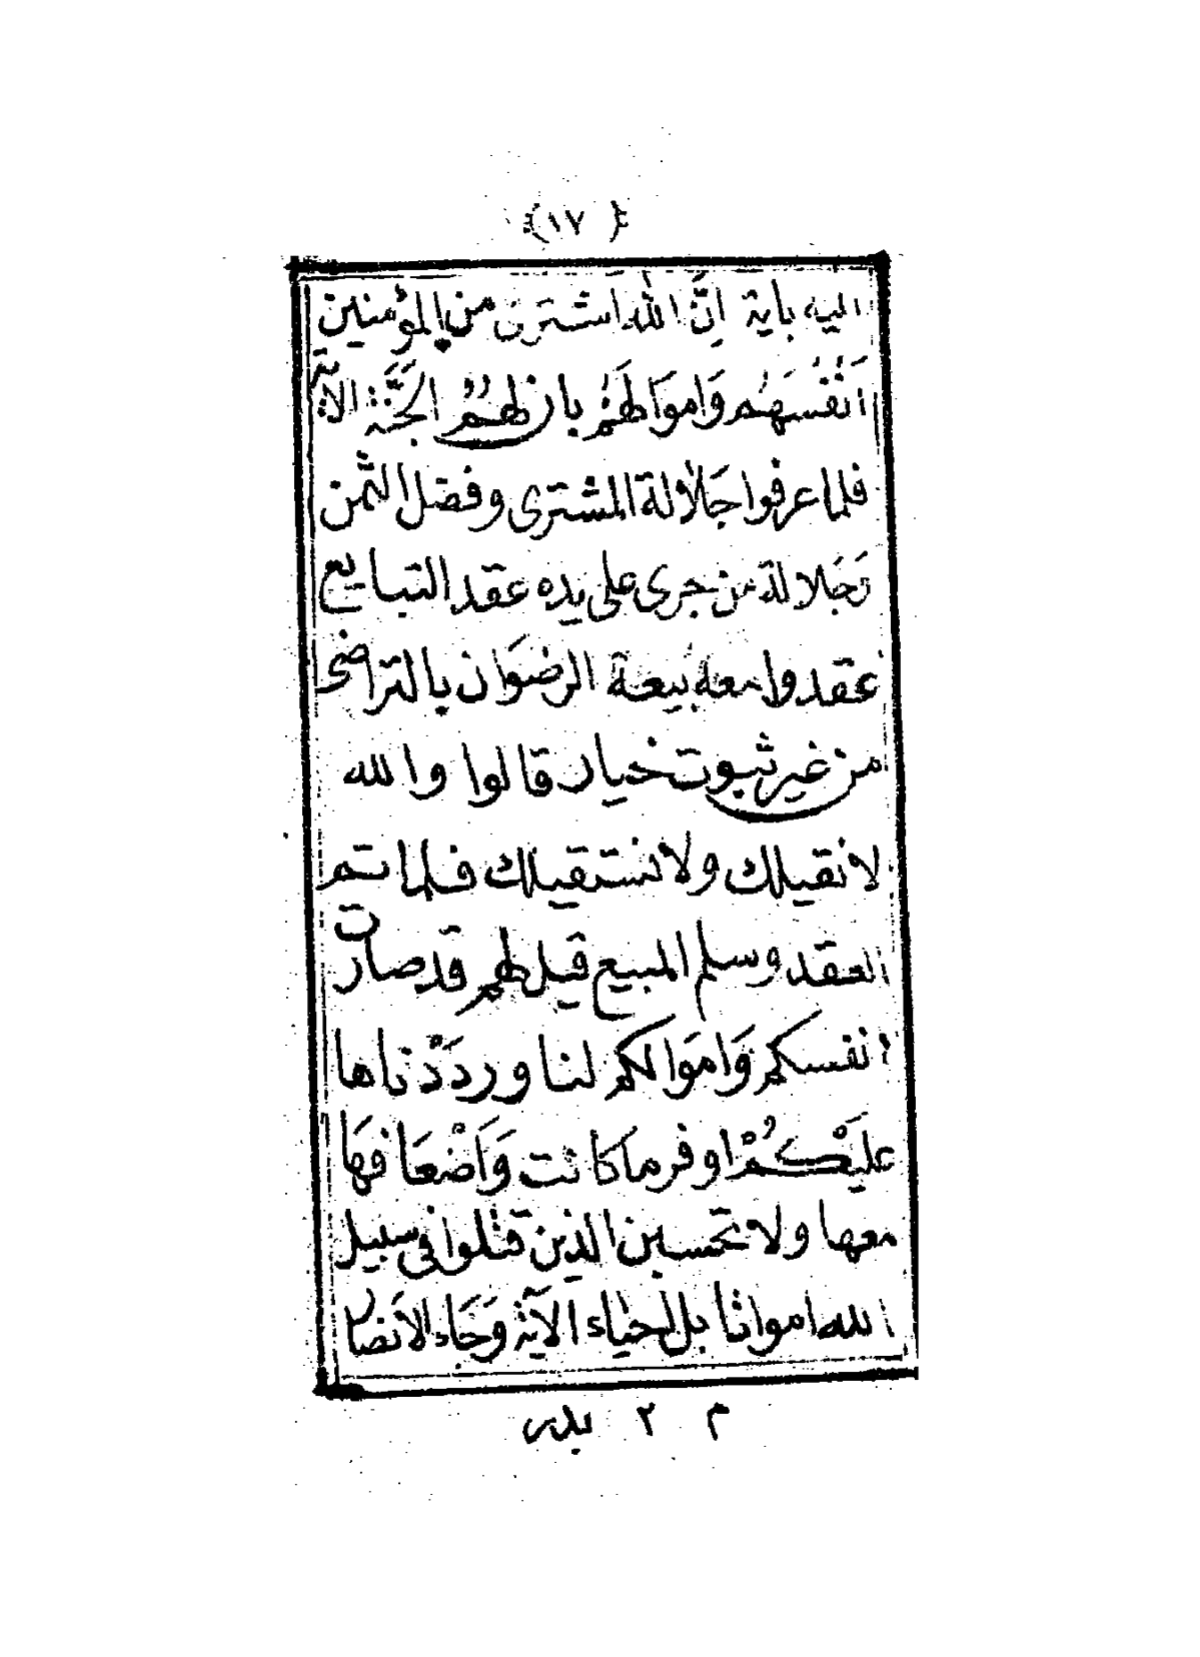 ﴿١٧﴾
اليه باية اِنَّ اللهَ اَشترى من المؤمنين
اَنْفُسَهُم وَاموَالهَمُ بان لهُمُ الجَنَّة الاية
فلما عرفوا جَلالة المشترى وفضل الثمن
وَجَلالة من جرى على يده عقد التبايع
عقدوا معه بيعة الرضوَان بالتراضى
من غير ثبوت خيار قالوا والله
لا نقيلك ولا نستقيلك فلما تم
العقد وسلم المبيع قيل لهم قد صارت
انفسكم وَاموَالكم لنا ورددْناها
عليَكُمْ اوفر ما كانت وَاَضْعَافهَا
معها ولا تحسبن الذين قتلوا فى سبيل
الله امواتا بل احياء الآية وَجَاء الاَنصار
م ٢ بدر